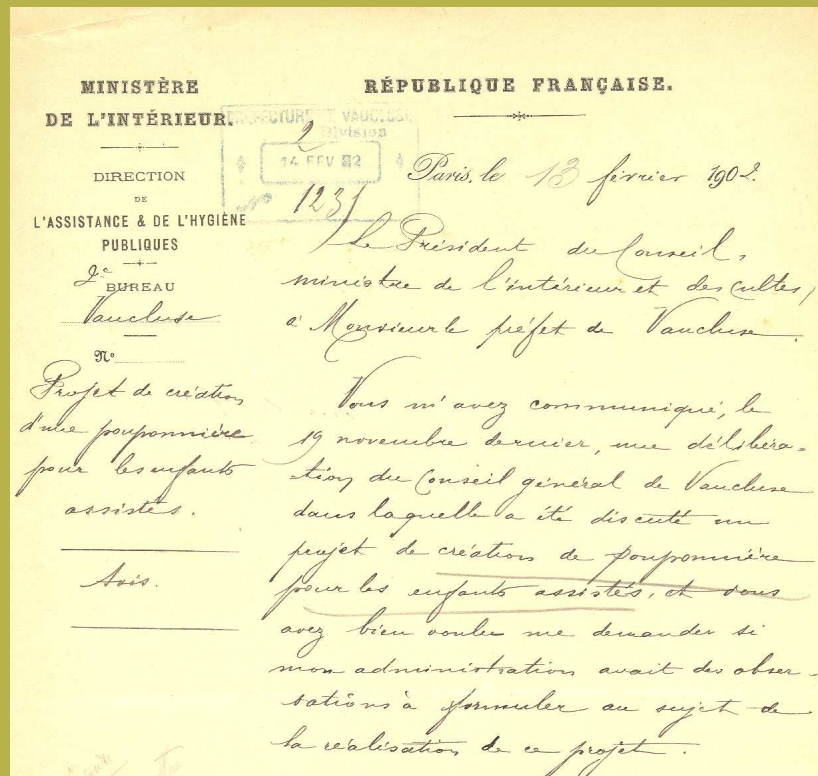 MINISTÈRE
DE L'INTÉRIEUR.
DIRECTION
DE
L'ASSISTANCE & DE L'HYGIÈNE
PUBLIQUES
2e BUREAU
Vaucluse
No
Projet de création
d'une pouponnière
pour les enfants
assistés.
Avis.
PREFECTURE DE VAUCLUSE
2 Division
14 FEV 02
123
RÉPUBLIQUE FRANÇAISE.
Paris, le 13 février 1902.
Le Président du Conseil,
ministre de l'intérieur et des cultes,
à Monsieur le préfet de Vaucluse.
Vous m'avez communiqué, le
19 novembre dernier, une délibéra-
tion du Conseil général de Vaucluse
dans laquelle a été discuté un
projet de création de pouponnière
pour les enfants assistés, et vous
avez bien voulu me demander si
mon administration avait des obser-
vations à formuler au sujet de
la réalisation de ce projet.